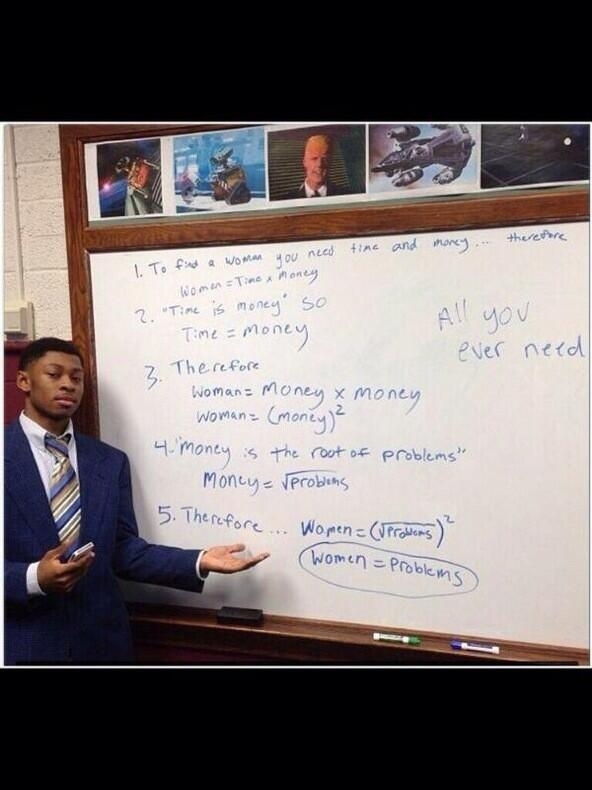 1. To find a woman you need time and money... therefore
Women = Time x Money
2. "Time is money" so
Time = Money
3. Therefore
Woman = Money x Money
Woman = (money)²
4. "Money is the root of problems"
Money = √Problems
5. Therefore... Women = (√Problems)²
Women = Problems
All you
ever need